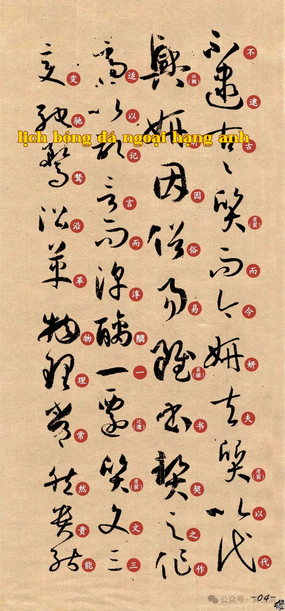 不逮古質而今妍夫質以代
興妍因俗易雖书契之作
适以记言而淳醨一遷質文三
变驰骛沿革物理常然貴能
lịch bóng đá ngoại hạng anh
公众号
-04-